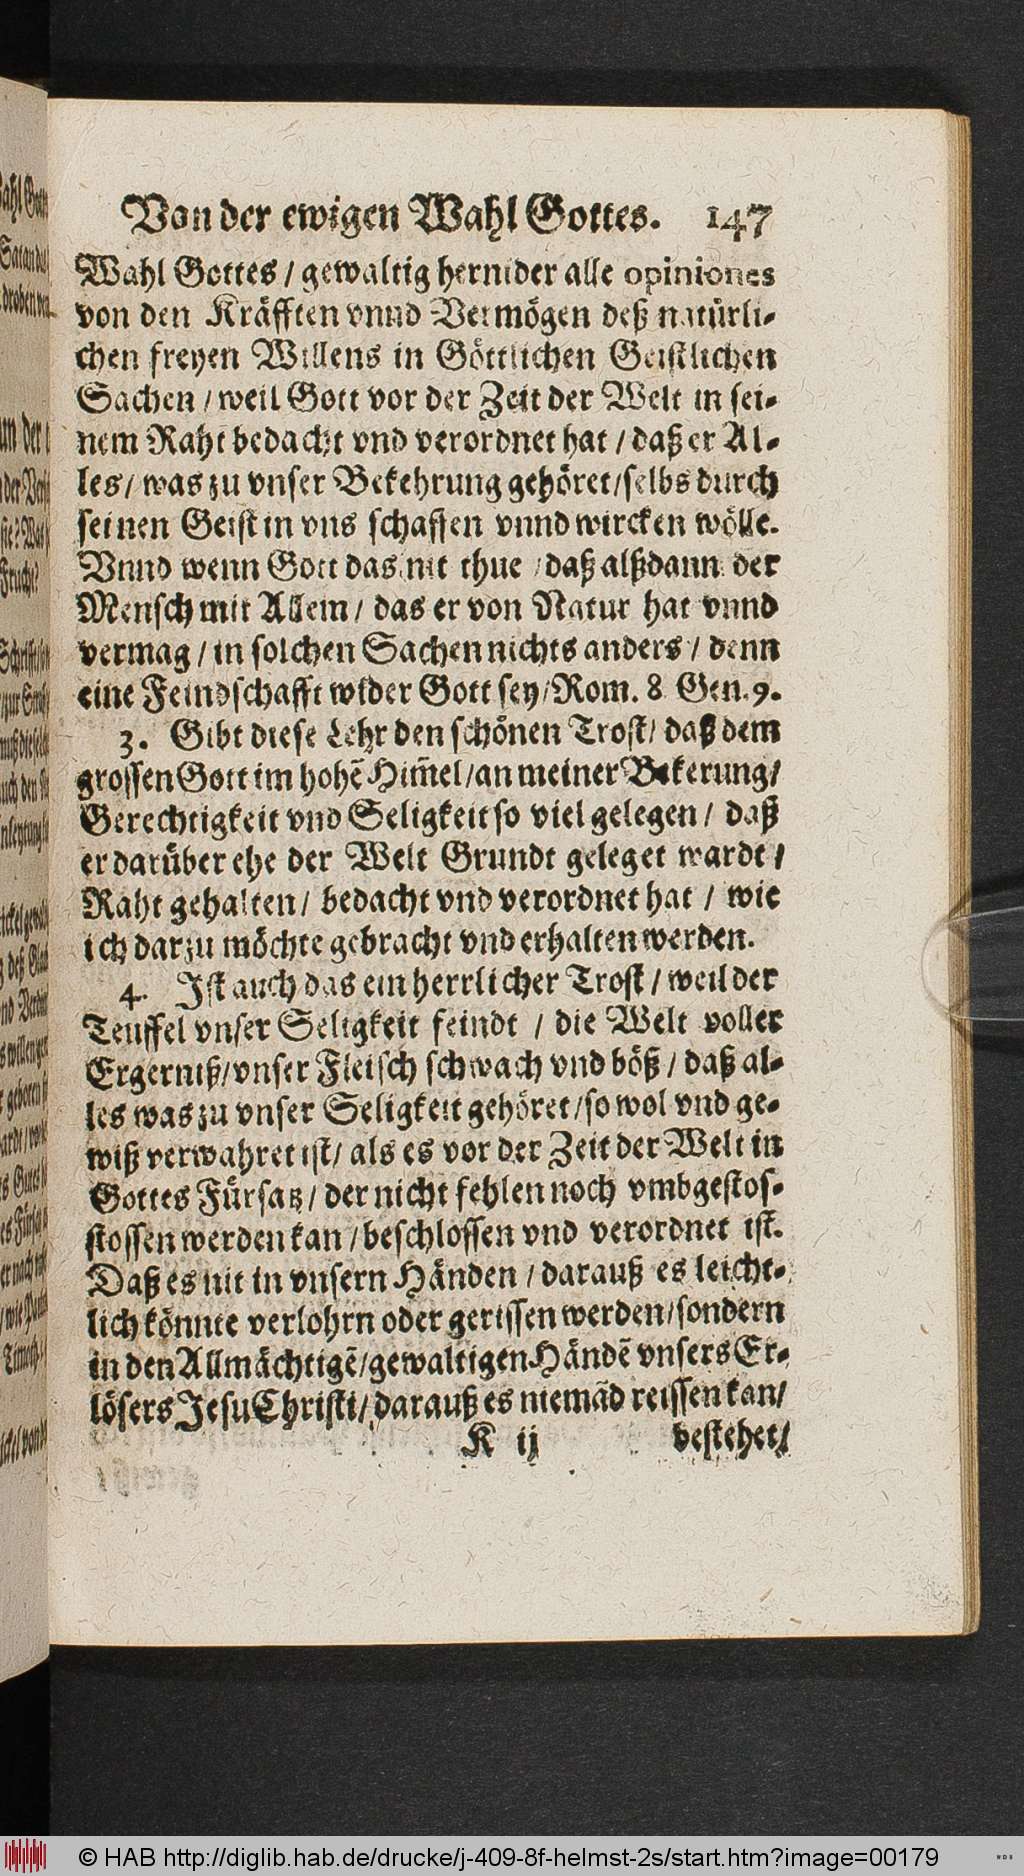 Von der ewigen Wahl Gottes. 147
Wahl Gottes / gewaltig hernider alle opiniones
von den Kräfften vnnd Vermögen deß natürli-
chen freyen Willens in Göttlichen Geistlichen
Sachen / weil Gott vor der Zeit der Welt in sei-
nem Raht bedacht vnd verordnet hat / daß er Al-
les / was zu vnser Bekehrung gehöret / selbs durch
seinen Geist in vns schaffen vnnd wircken wölle.
Vnnd wenn Gott das nit thue / daß alßdann der
Mensch mit Allem / das er von Natur hat vnnd
vermag / in solchen Sachen nichts anders / denn
eine Feindschafft wider Gott sey / Rom. 8 Gen. 9.
3. Gibt diese Lehr den schönen Trost / daß dem
grossen Gott im hohē Him̄el / an meiner Bekerung /
Gerechtigkeit vnd Seligkeit so viel gelegen / daß
er darüber ehe der Welt Grundt geleget wardt /
Raht gehalten / bedacht vnd verordnet hat / wie
ich darzu möchte gebracht vnd erhalten werden.
4. Ist auch das ein herrlicher Trost / weil der
Teuffel vnser Seligkeit feindt / die Welt voller
Ergerniß / vnser Fleisch schwach vnd böß / daß al-
les was zu vnser Seligkeit gehöret / so wol vnd ge-
wiß verwahret ist / als es vor der Zeit der Welt in
Gottes Fürsatz / der nicht fehlen noch vmbgestos-
stossen werden kan / beschlossen vnd verordnet ist.
Daß es nit in vnsern Händen / darauß es leicht-
lich könnte verlohrn oder gerissen werden / sondern
in den Allmächtigē / gewaltigen Händē vnsers Er-
lösers Jesu Christi / darauß es niemād reissen kan /
K ij bestehet /
© HAB http://diglib.hab.de/drucke/j-409-8f-helmst-2s/start.htm?image=00179